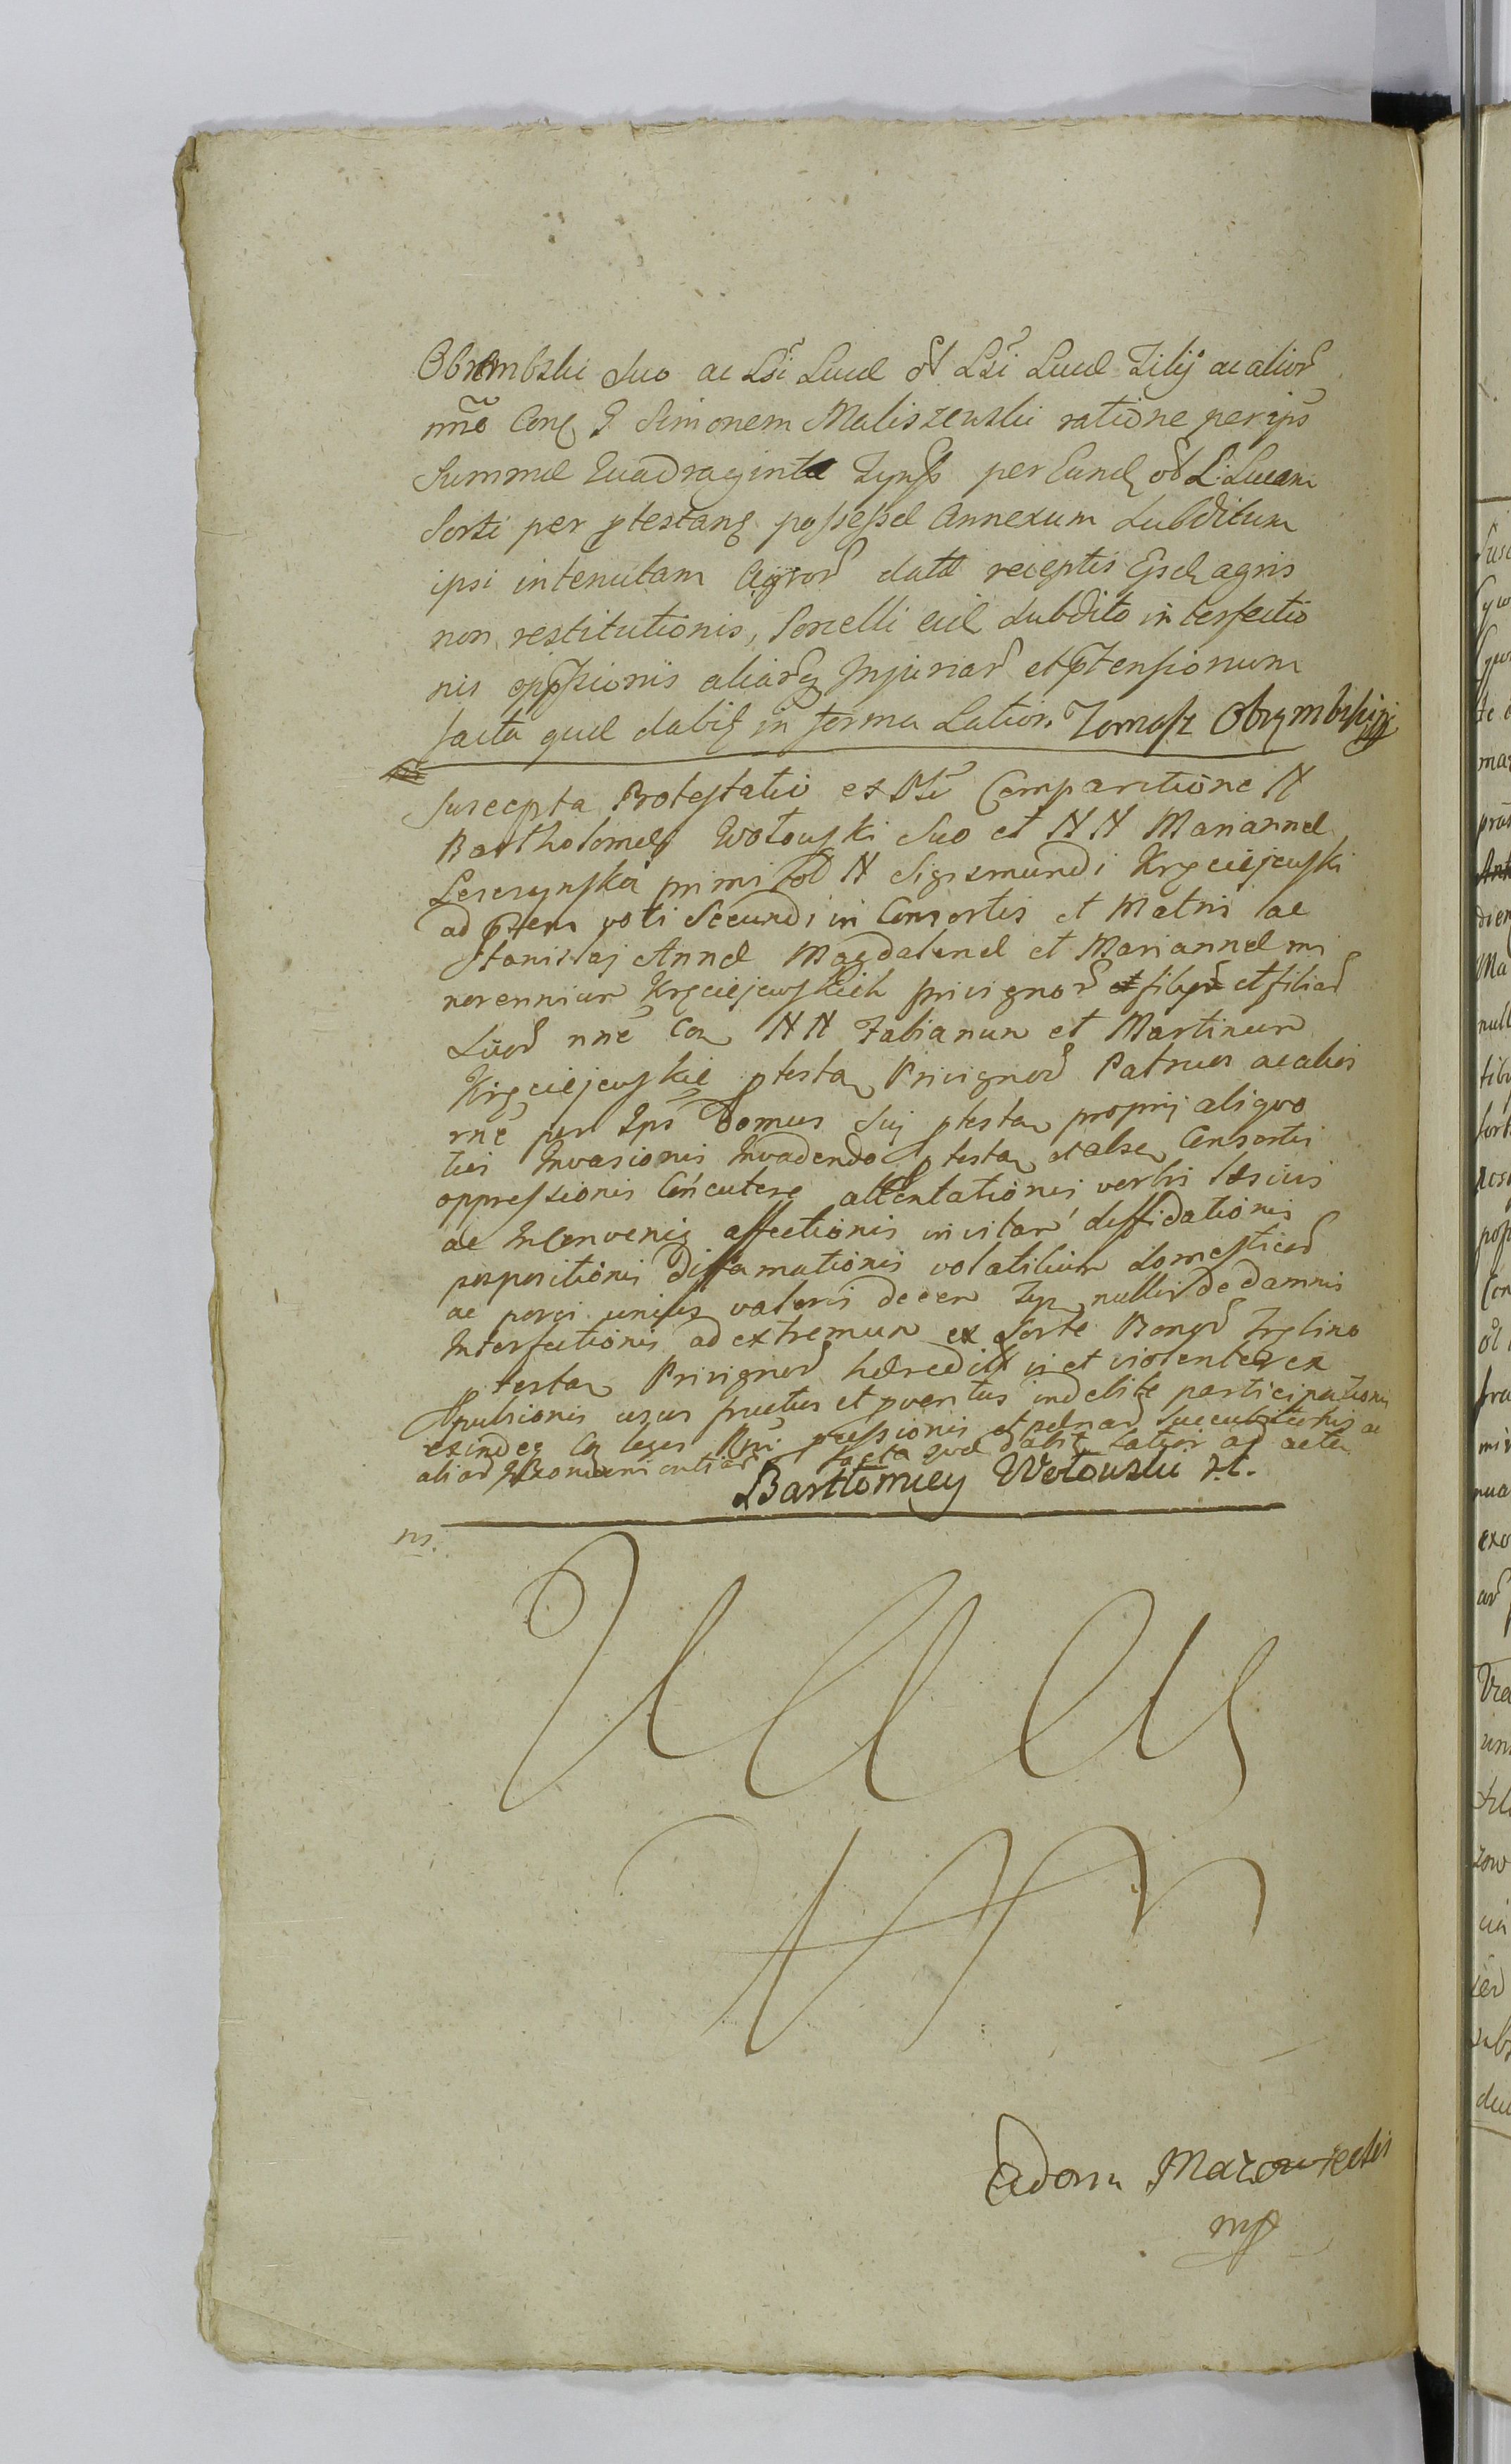 Obrembski suo ac Lsi Lucæ ol Lsi Lucæ Filij ac alior
nne Con G Simonem Maliszewski ratione per ips
Summæ Quadraginta Tynf per Eund ol L: Lucam
Sorti per ptestan possessæ Annexum Subditum
ipsi in tenutam Agror datæ receptis Ejsd agris
non restitutionis, Porcelli eid Subdito interfectio
nis oppssionis aliarq Injuriar et ptensionum
facta quæ dabit in forma Latior. Tomasz Obrymbski
Suscepta Protestatio ex Psti Comparitione N
Bartholomei Wotowski Suo et N N Mariannæ
Leszczynska primi ol N Sigismundi Kręciejewski
ad Psens voti Secundi in Consortis et Matris ac
Stanislaj Annæ Magdalenæ et Mariannæ mi
norennium Kręciejewskich privignor et filior et filiar
Suor nne Con N N Fabianum et Martinum
Kręciejewskie ptestan Privignor Patruos ac alios
rne per Ips Domus Sui ptestan proprij aliquo
ties Invasionis Invadendo ptestan et absen Consortis
oppressionis Concutere attentationis verbis læsivis
ac Inconvenien affectionis invitar diffidationis
porpositionis Diffamationis volatilium domesticor
ac porci unius valoris decem Typ nullis de damnis
Interfectionis ad extremum ex Sorte Bonor Trzlino
ptestan Privignor hæredit vi et violenter ex
pulsionis usus fructus et pventus indebite participationis
exindeq Con leges Rni pcessionis et pænar Succubitionis ac
aliar facta quæ dabit Latior ad acta
Bartłomiey Wotowski
ns.
Adam Mazowiecki
mp